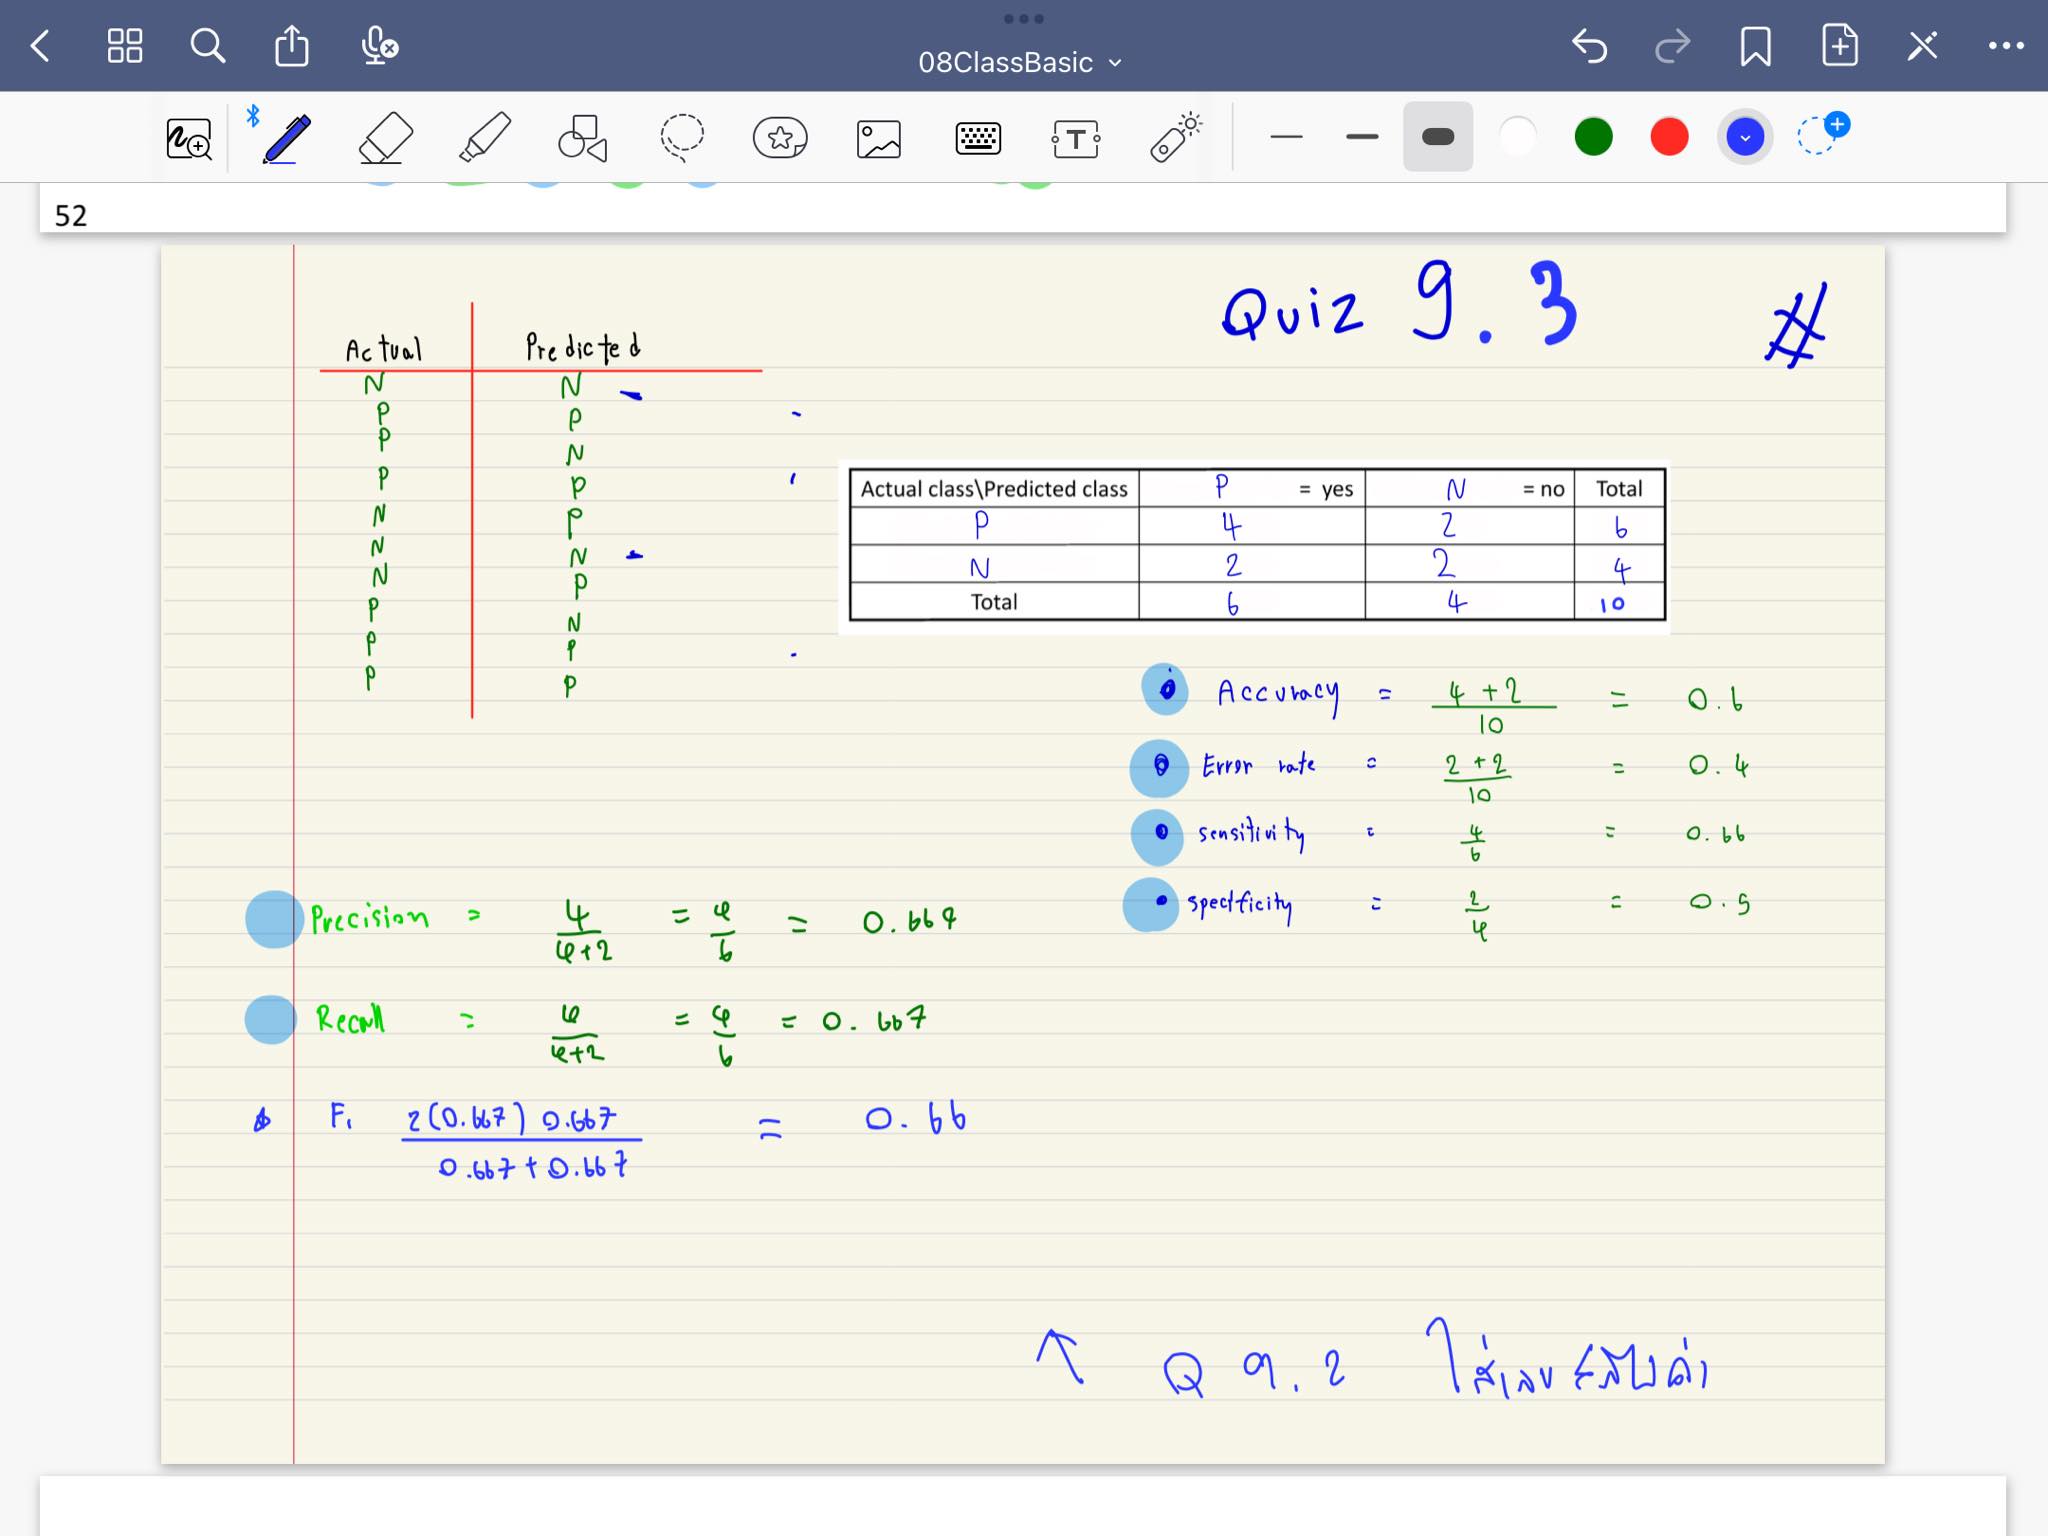 08ClassBasic
T
52
Quiz 9.3 #
Actual Predicted
N N
P P
P N
P P
N P
N N
N P
P N
P P
P P
Actual class\Predicted class P = yes N = no Total
P 4 2 6
N 2 2 4
Total 6 4 10
Accuracy = 4+2/10 = 0.6
Error rate = 2+2/10 = 0.4
sensitivity = 4/6 = 0.66
specificity = 2/4 = 0.5
Precision = 4/4+2 = 4/6 = 0.667
Recall = 4/4+2 = 4/6 = 0.667
F1 2(0.667) 0.667/0.667+0.667 = 0.66
↑ Q 9.2 ใส่เลข